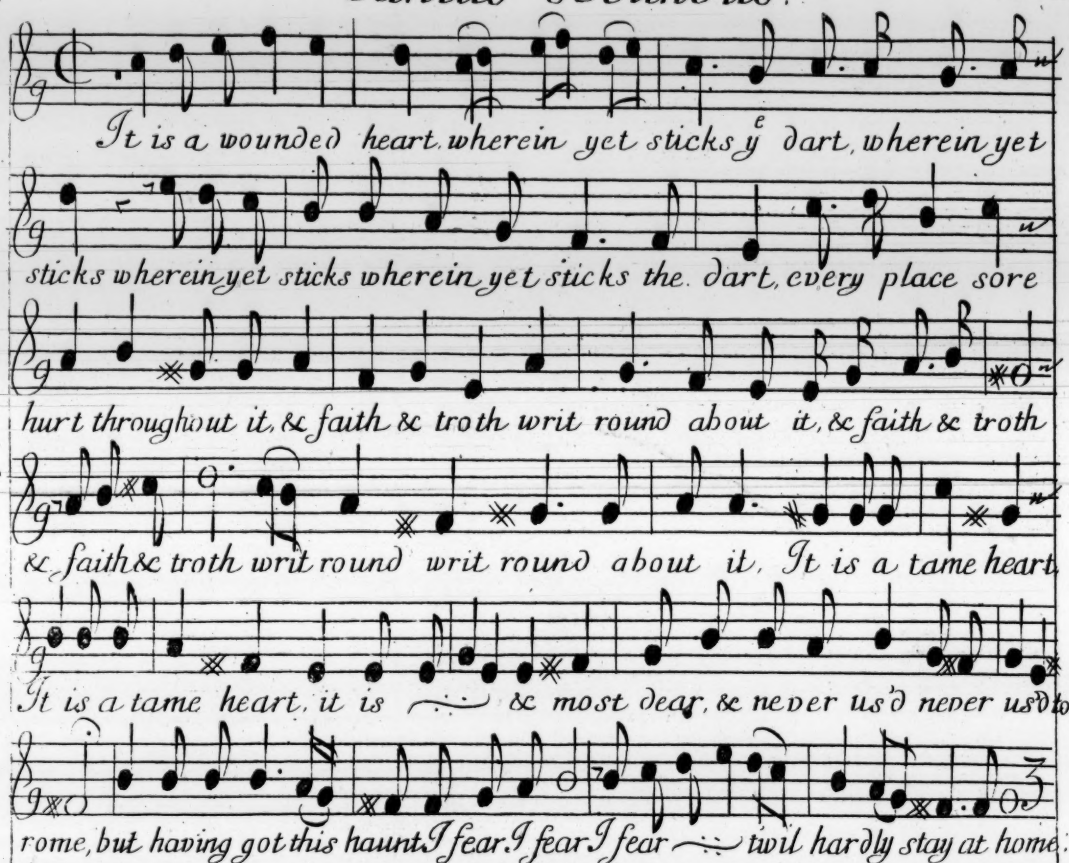 It is a wounded heart, wherein yet sticks yᵉ dart, wherein yet
sticks wherein yet sticks wherein yet sticks the dart, every place sore
hurt throughout it, & faith & troth writ round about it, & faith & troth
& faith & troth writ round writ round about it, It is a tame heart
It is a tame heart, it is & most dear, & never us'd never us'd to
rome, but having got this haunt I fear I fear I fear twil hardly stay at home: